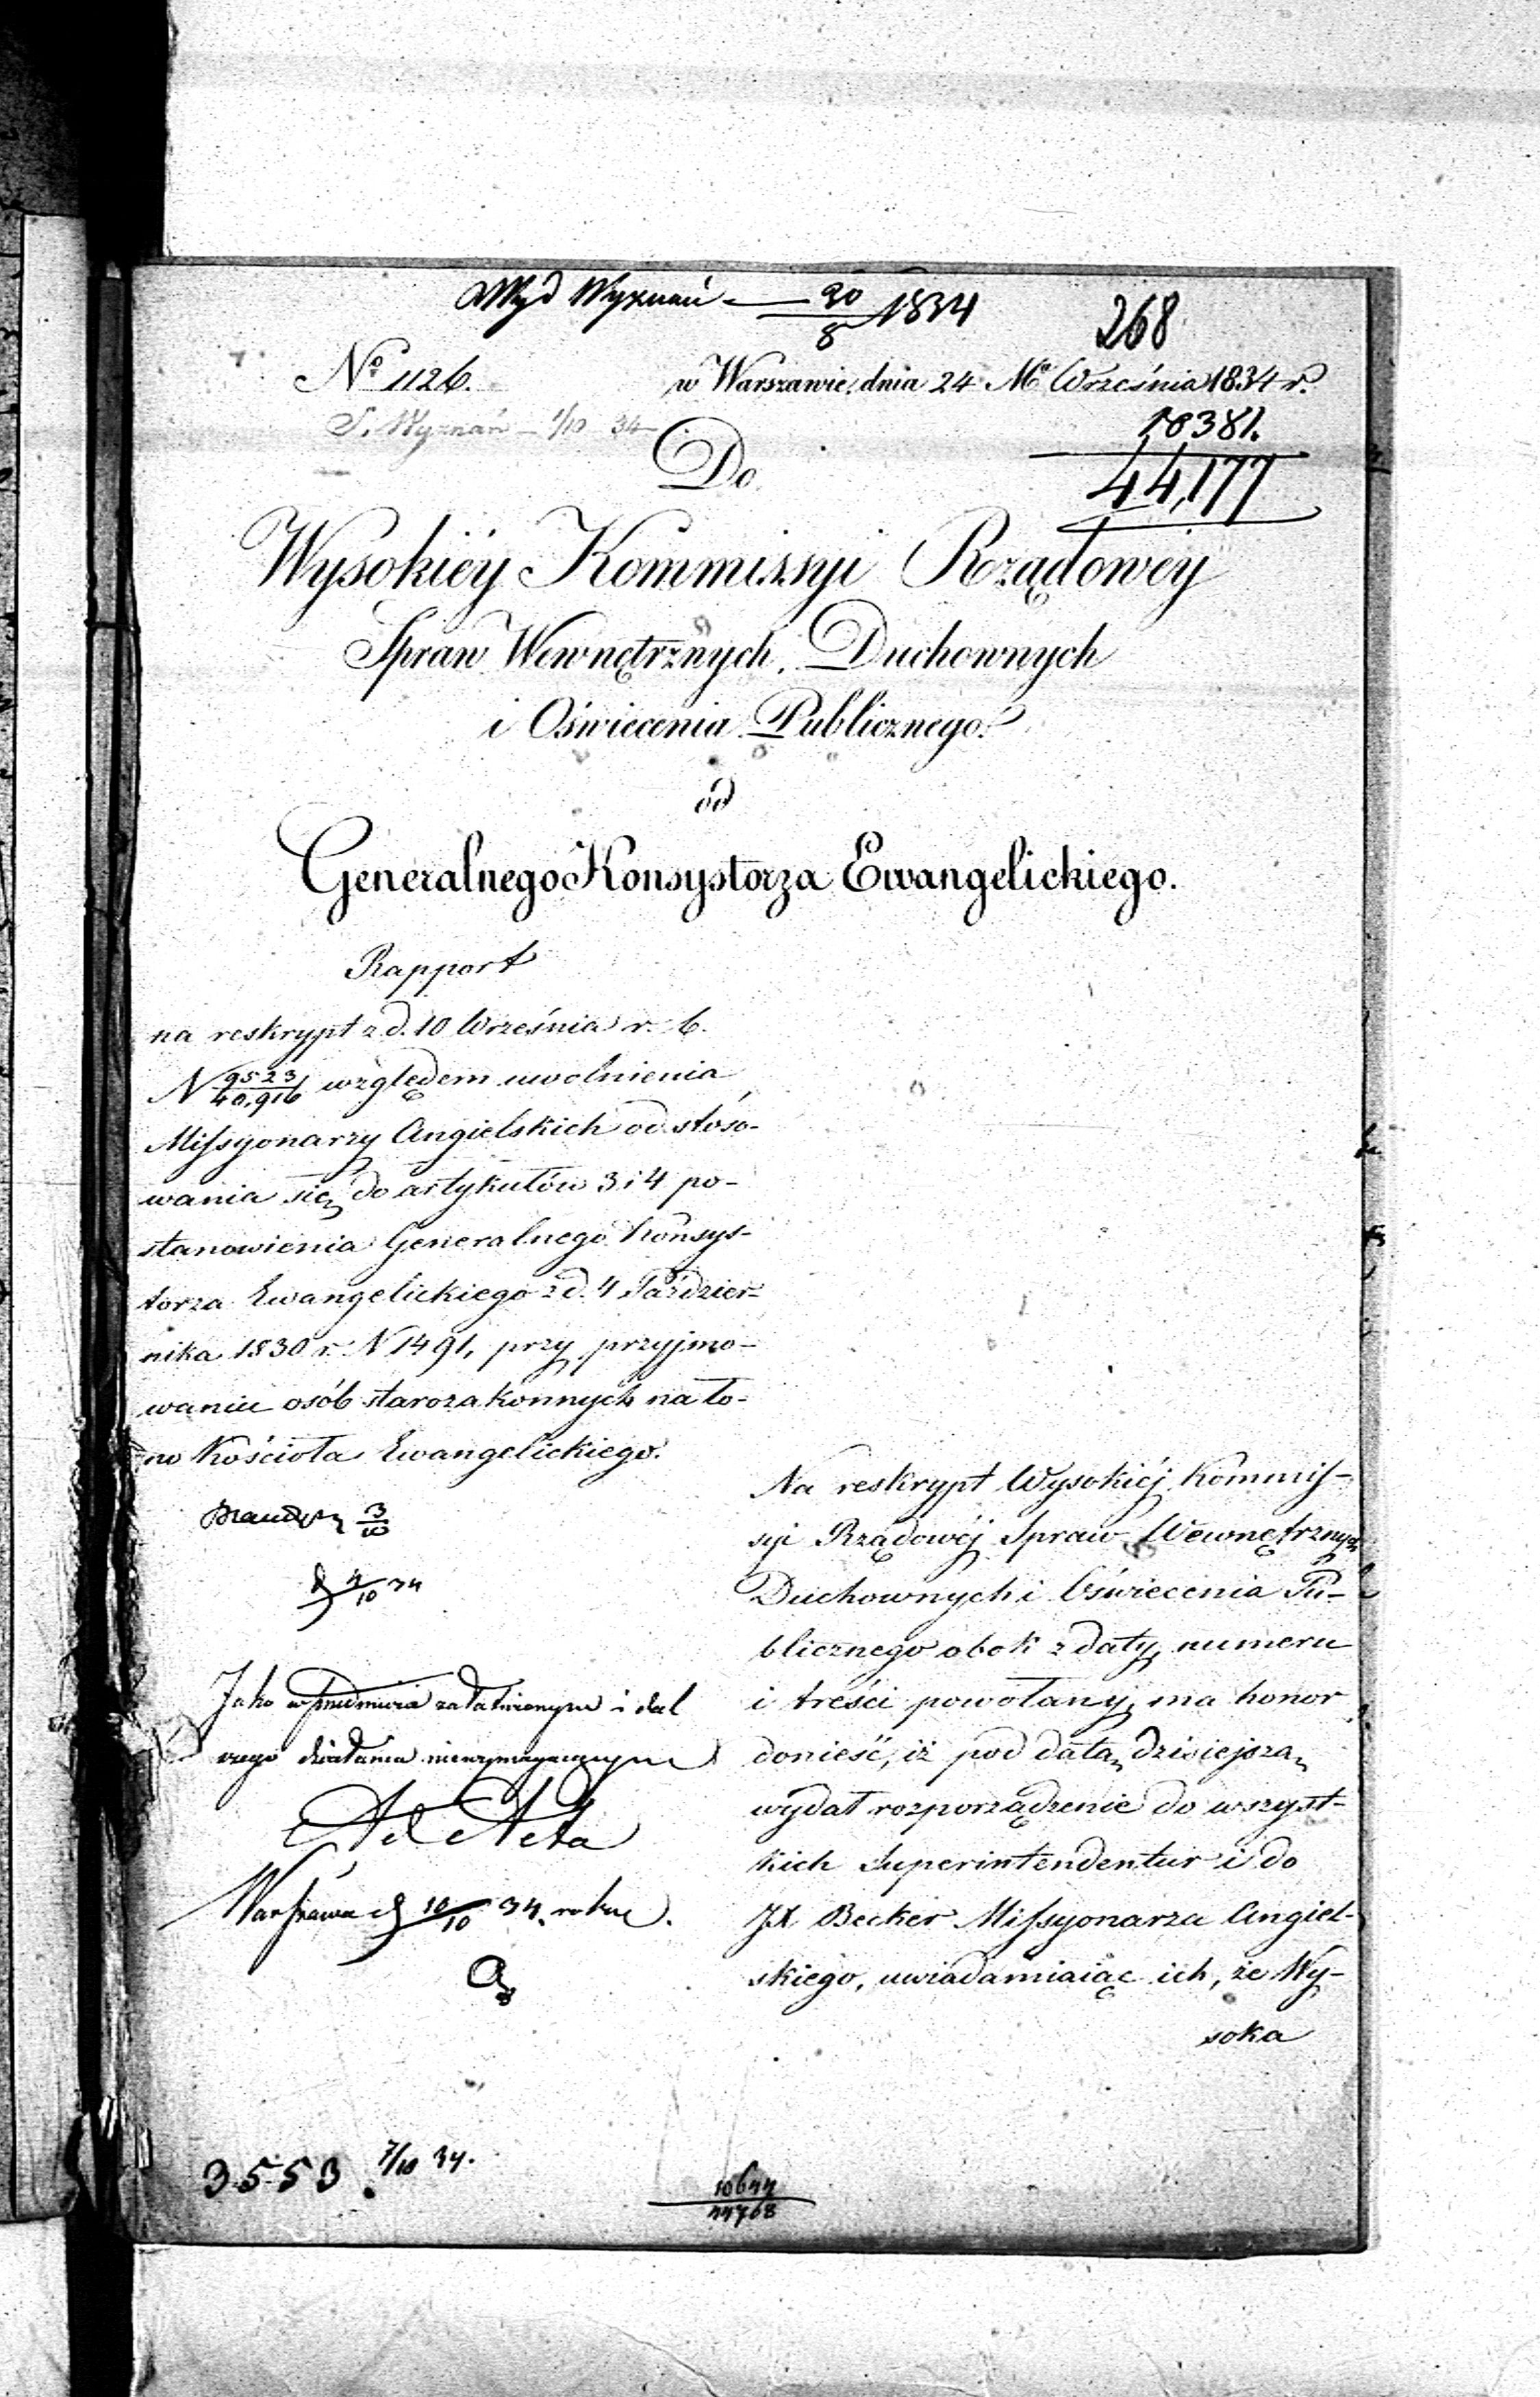 Wyd Wyznań — 30/8 1834
268
No 1126.
w Warszawie, dnia 24 Ma Września 1834 r.
S. Wyznań — 1/10 34
10381.
44,177
Do
Wysokiéy Kommissyi Rządowéy
Spraw Wewnętrznych, Duchownych
i Oświecenia Publicznego.
od
Generalnego Konsystorza Ewangelickiego.
Rapport
na reskrypt z d. 10 Września r. b.
N 9523/40,916 względem uwolnienia
Missyonarzy Angielskich od stóso-
wania się do artykułów 3 i 4 po-
stanowienia Generalnego Konsys-
torza Ewangelickiego z d. 4 Paździer-
nika 1830 r. N 1491, przy przyjmo-
waniu osób starozakonnych na ło-
no Kościoła Ewangelickiego.
Na reskrypt Wysokiéj Kommis-
syi Rządowéj Spraw Wewnętrznych
Duchownych i Oświecenia Pu-
blicznego obok z daty, numeru
i treści powołany, ma honor
donieść, iż pod datą dzisiejszą
wydał rozporządzenie do wszyst-
kich Superintendentur i do
JX Becker Missyonarza Angiel-
skiego, uwiadamiaiąc ich, że Wy-
soka
3/10
d 4/10 34
Jako w przedmiocie załatwionym i dal
szego działania niewymagającym
Ad Acta
Warszawa d 10/10 34. roku.
3553 7/10 34.
10644
44768